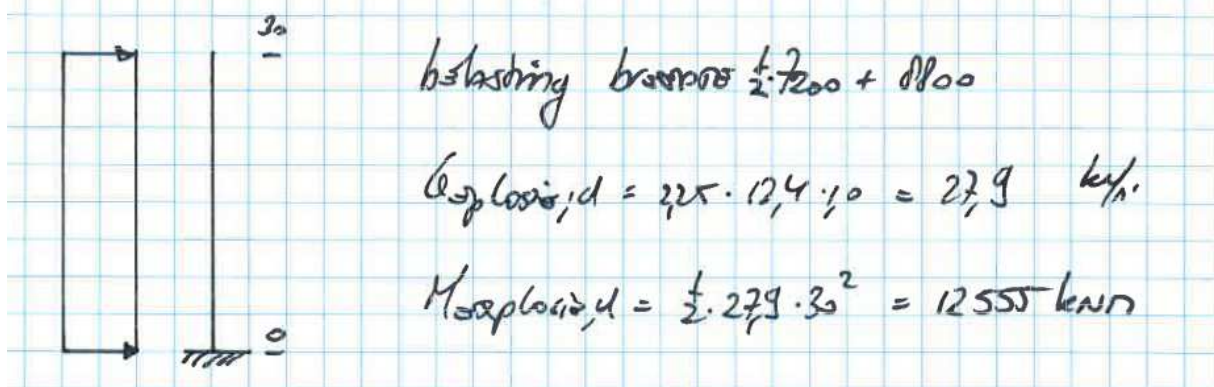 30
belasting breedte ½·7200 + 8800
Q explosie;d = 2,25 · 12,4 · 1,0 = 27,9 kN/m
M explosie,d = ½ · 27,9 · 30² = 12555 kNm
0